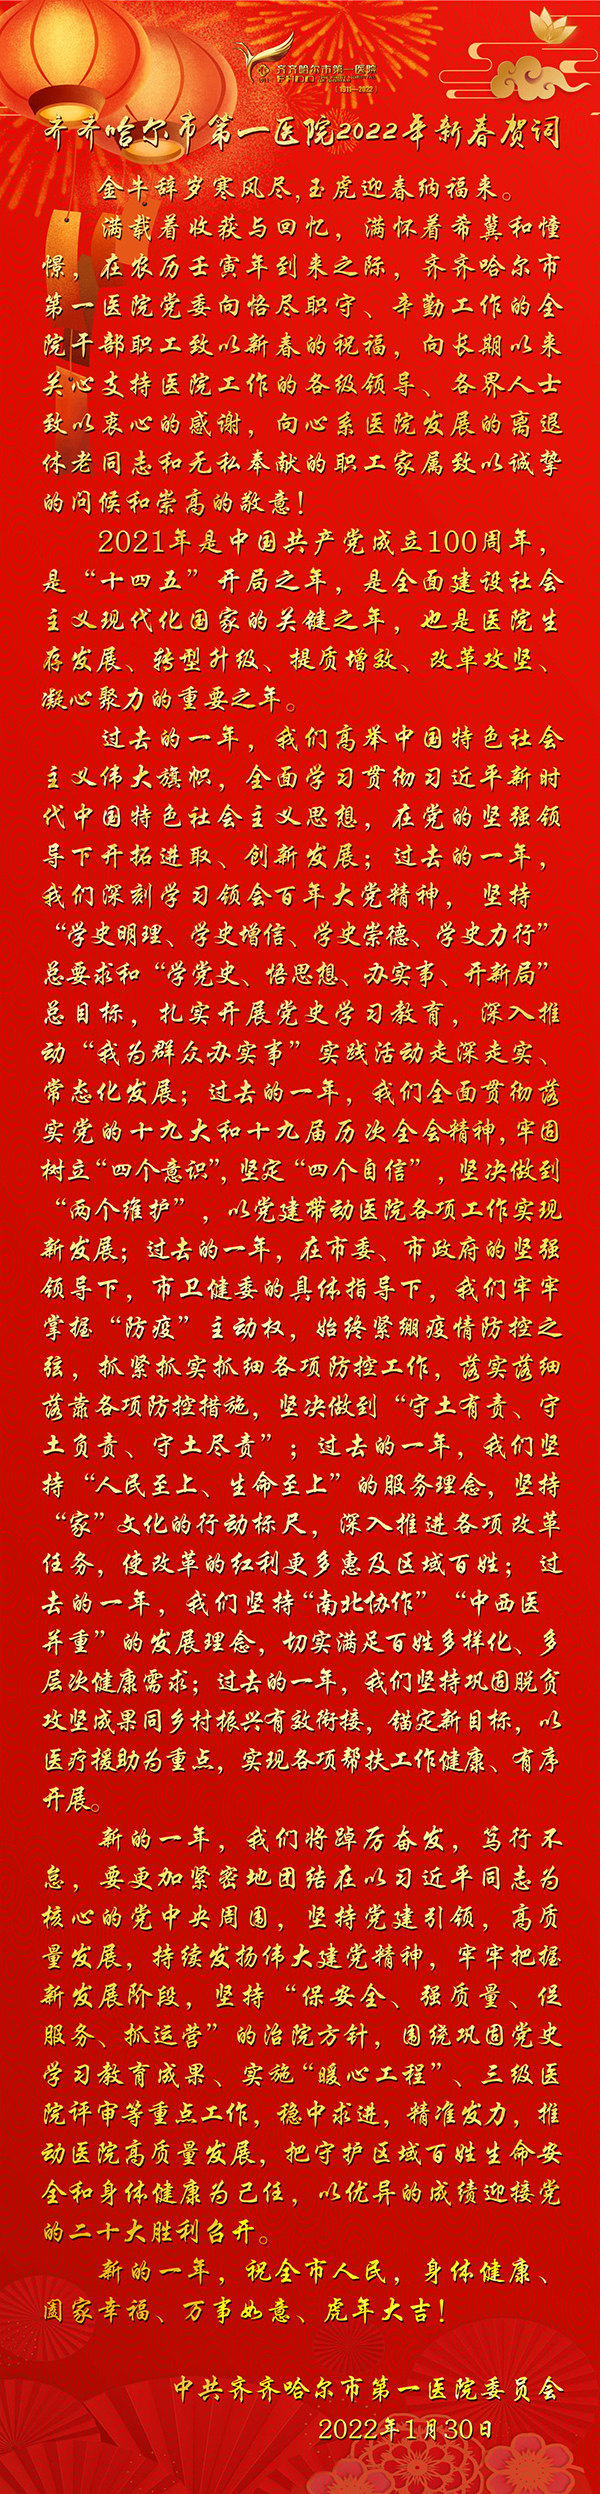 齐齐哈尔市第一医院
(1911-2022)
齐齐哈尔市第一医院2022年新春贺词
金牛辞岁寒风尽,玉虎迎春纳福来。
满载着收获与回忆，满怀着希冀和憧
憬，在农历壬寅年到来之际，齐齐哈尔市
第一医院党委向恪尽职守、辛勤工作的全
院干部职工致以新春的祝福，向长期以来
关心支持医院工作的各级领导、各界人士
致以衷心的感谢，向心系医院发展的离退
休老同志和无私奉献的职工家属致以诚挚
的问候和崇高的敬意！
2021年是中国共产党成立100周年，
是“十四五”开局之年，是全面建设社会
主义现代化国家的关键之年，也是医院生
存发展、转型升级、提质增效、改革攻坚、
凝心聚力的重要之年。
过去的一年，我们高举中国特色社会
主义伟大旗帜，全面学习贯彻习近平新时
代中国特色社会主义思想，在党的坚强领
导下开拓进取、创新发展；过去的一年，
我们深刻学习领会百年大党精神，坚持
“学史明理、学史增信、学史崇德、学史力行”
总要求和“学党史、悟思想、办实事、开新局”
总目标，扎实开展党史学习教育，深入推
动“我为群众办实事”实践活动走深走实、
常态化发展；过去的一年，我们全面贯彻落
实党的十九大和十九届历次全会精神,牢固
树立“四个意识”,坚定“四个自信”,坚决做到
“两个维护”，以党建带动医院各项工作实现
新发展；过去的一年，在市委、市政府的坚强
领导下，市卫健委的具体指导下，我们牢牢
掌握“防疫”主动权，始终紧绷疫情防控之
弦，抓紧抓实抓细各项防控工作，落实落细
落靠各项防控措施，坚决做到“守土有责、守
土负责、守土尽责”；过去的一年，我们坚
持“人民至上、生命至上”的服务理念，坚持
“家”文化的行动标尺，深入推进各项改革
任务，使改革的红利更多惠及区域百姓；过
去的一年，我们坚持“南北协作”“中西医
并重”的发展理念，切实满足百姓多样化、多
层次健康需求；过去的一年，我们坚持巩固脱贫
攻坚成果同乡村振兴有效衔接，锚定新目标，以
医疗援助为重点，实现各项帮扶工作健康、有序
开展。
新的一年，我们将踔厉奋发，笃行不
怠，要更加紧密地团结在以习近平同志为
核心的党中央周围，坚持党建引领，高质
量发展，持续发扬伟大建党精神，牢牢把握
新发展阶段，坚持“保安全、强质量、促
服务、抓运营”的治院方针，围绕巩固党史
学习教育成果、实施“暖心工程”、三级医
院评审等重点工作，稳中求进，精准发力，推
动医院高质量发展，把守护区域百姓生命安
全和身体健康为己任，以优异的成绩迎接党
的二十大胜利召开。
新的一年，祝全市人民，身体健康、
阖家幸福、万事如意、虎年大吉！
中共齐齐哈尔市第一医院委员会
2022年1月30日